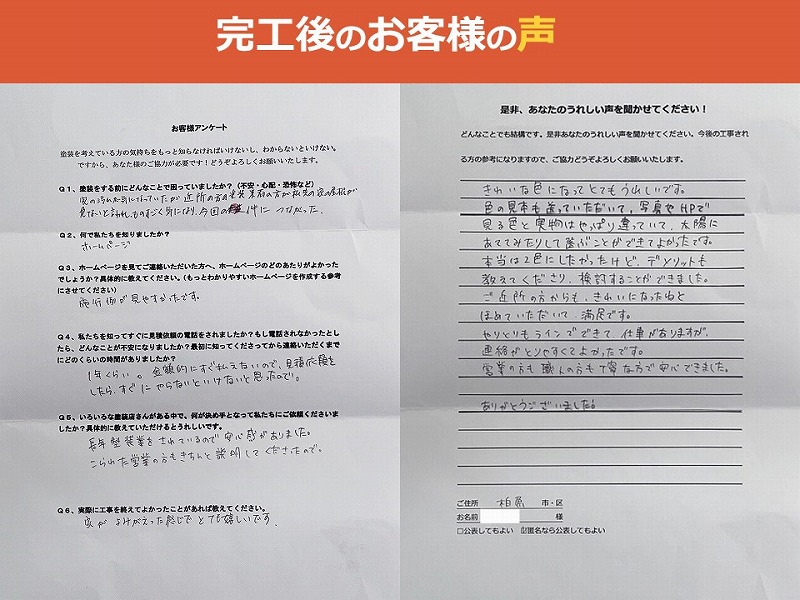 完工後のお客様の声
お客様アンケート
塗装を考えている方の気持ちをもっと知らなければいけないし、わからないといけない。
ですから、あなた様のご協力が必要です！どうぞよろしくお願いいたします。
Q1、塗装をする前にどんなことで困っていましたか？（不安・心配・恐怖など）
家の汚れた気になっていたが近所の方の
見ないと言われ、ものすごく気になり、今回の件につながった。
Q2、何で私たちを知りましたか？
ホームページ
Q3、ホームページを見てご連絡いただいた方へ、ホームページのどのあたりがよかった
でしょうか？具体的に教えてください。（もっとわかりやすいホームページを作成する参考
にさせてください）
施術例が見やすかったです。
Q4、私たちを知ってすぐに見積依頼の電話をされましたか？もし電話されなかったとし
たら、どんなことが不安になりましたか？最初に知ってくださってから連絡いただくまで
にどのくらいの時間がありましたか？
1年くらい。金額的にすぐ払えないので、見積依頼を
したら、すぐにやらないといけないと思ったので。
Q5、いろいろな塗装店さんがある中で、何が決め手となって私たちにご依頼くださいま
したか？具体的に教えていただけるとうれしいです。
長年塗装業をされているので安心感がありました。
こられた営業の方もきちんと説明してくださったので。
Q6、実際に工事を終えてよかったことがあれば教えてください。
家がよみがえった感じでとても嬉しいです。
是非、あなたのうれしい声を聞かせてください！
どんなことでも結構です。是非あなたのうれしい声を聞かせてください。今後の工事され
る方の参考になりますので、ご協力どうぞよろしくお願いいたします。
きれいな色になってとてもうれしいです。
色の見本も塗っていただいて、写真やHPで
見る色と実物はやっぱり違っていて、太陽に
あててみたりして選ぶことができてよかったです。
本当は2色にしたかったけど、デメリットも
教えてくださり、検討することができました。
ご近所の方からも、きれいになったねと
ほめていただいて、満足です。
やりとりもラインでできて、仕事がありますが、
連絡がとりやすくてよかったです。
営業の方も職人の方も丁寧な方で安心できました。
ありがとうございました！
ご住所 柏原 市・区
お名前 様
□公表してもよい ☑匿名なら公表してもよい